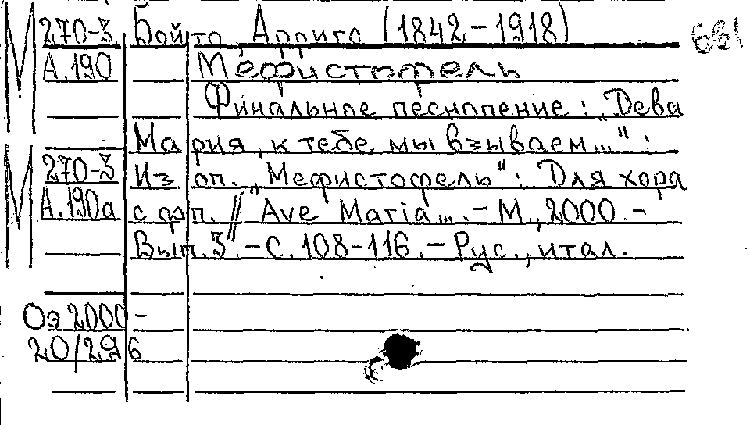 М 270-3 Бойто, Арриго (1842-1918) 661
А.190 Мефистофель
Финальное песнопение: "Дева
Мария, к тебе мы взываем...":
М 270-3 Из оп. "Мефистофель": Для хора
А.190а с фп. // "Ave Maria... .-М., 2000.-
Вып. 3.-С. 108-116.-Рус., итал.
Оэ 2000-
20/296